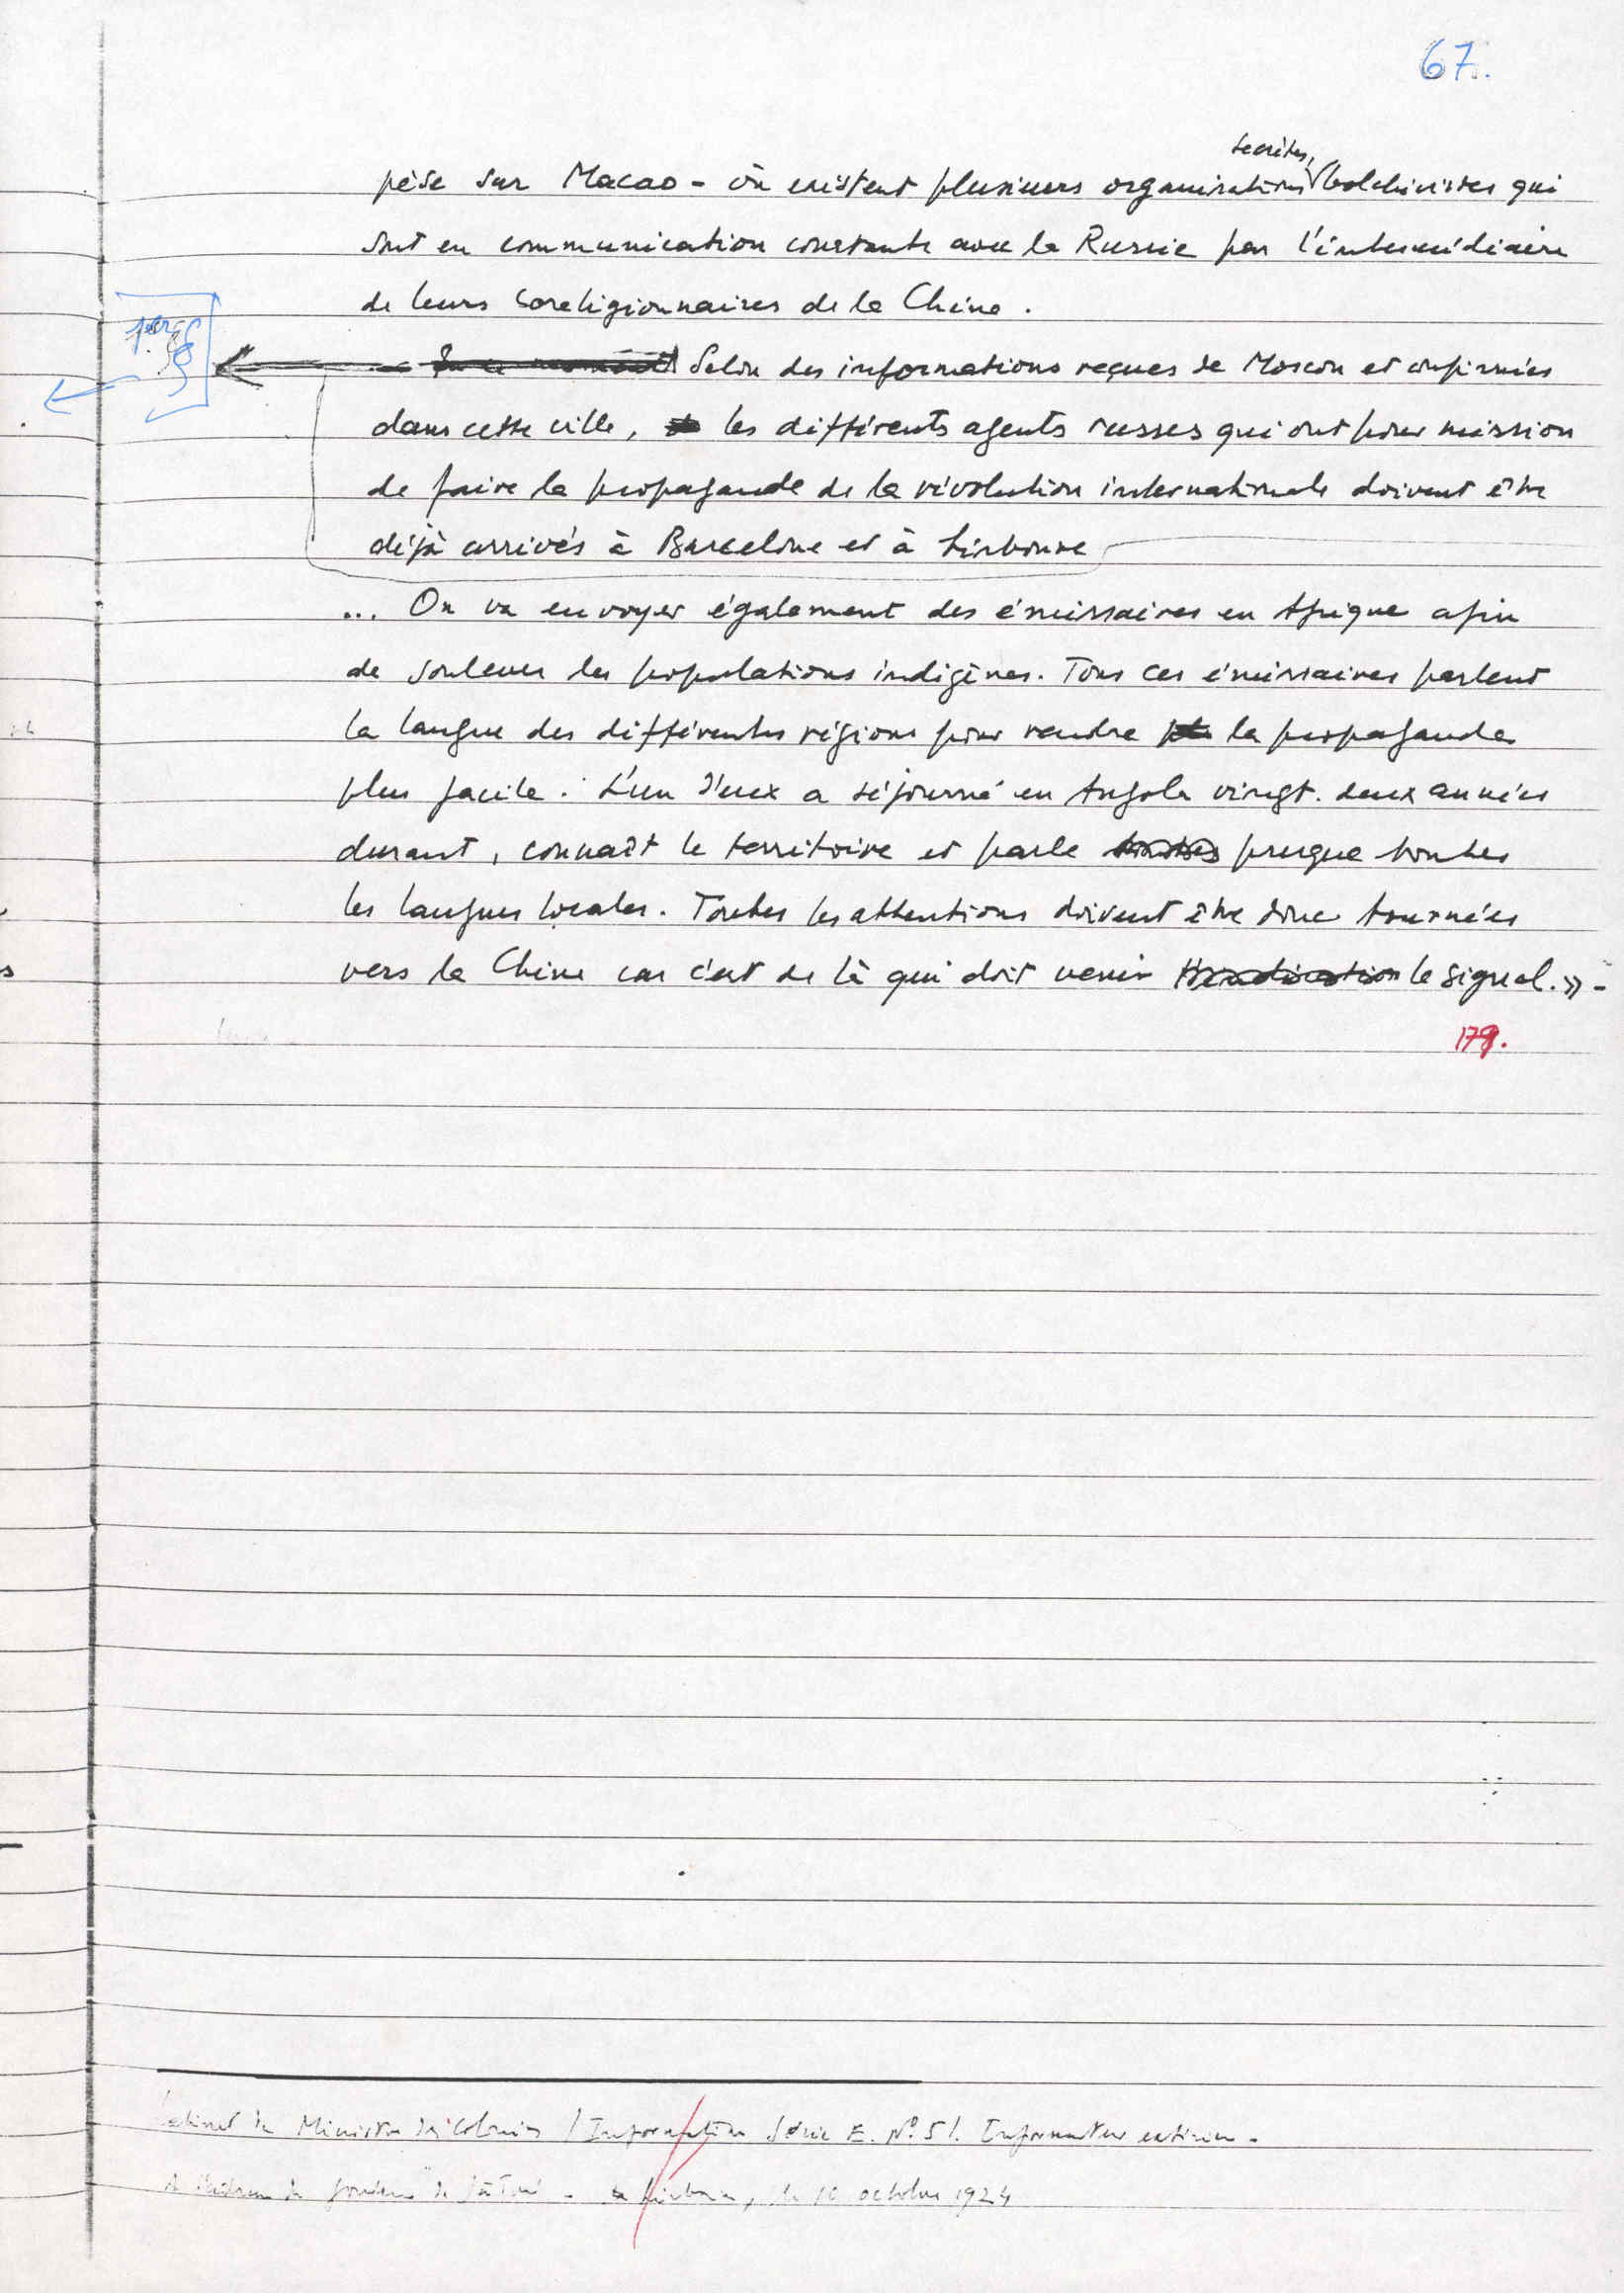 67.
secrètes,
pèse sur Macao - où existent plusieurs organisations bolchévistes qui
sont en communication constante avec la Russie par l'intermédiaire
de leurs coreligionnaires de la Chine.
Selon des informations reçues de Moscou et confirmées
dans cette ville, les différents agents russes qui ont pour mission
de faire la propagande de la révolution internationale doivent être
déjà arrivés à Barcelone et à Lisbonne
... On va envoyer également des émissaires en Afrique afin
de soulever les populations indigènes. Tous ces émissaires parlent
la langue des différentes régions pour rendre la propagande
plus facile. L'un d'eux a séjourné en Angola vingt-deux années
durant, connaît le territoire et parle presque toutes
les langues locales. Toutes les attentions doivent être donc tournées
vers la Chine car c'est de là qui doit venir le signal.» -
179.
Cabinet du Ministre des Colonies / Information Série E. Nº 51. Informateur
Lisbonne, le 10 octobre 1924